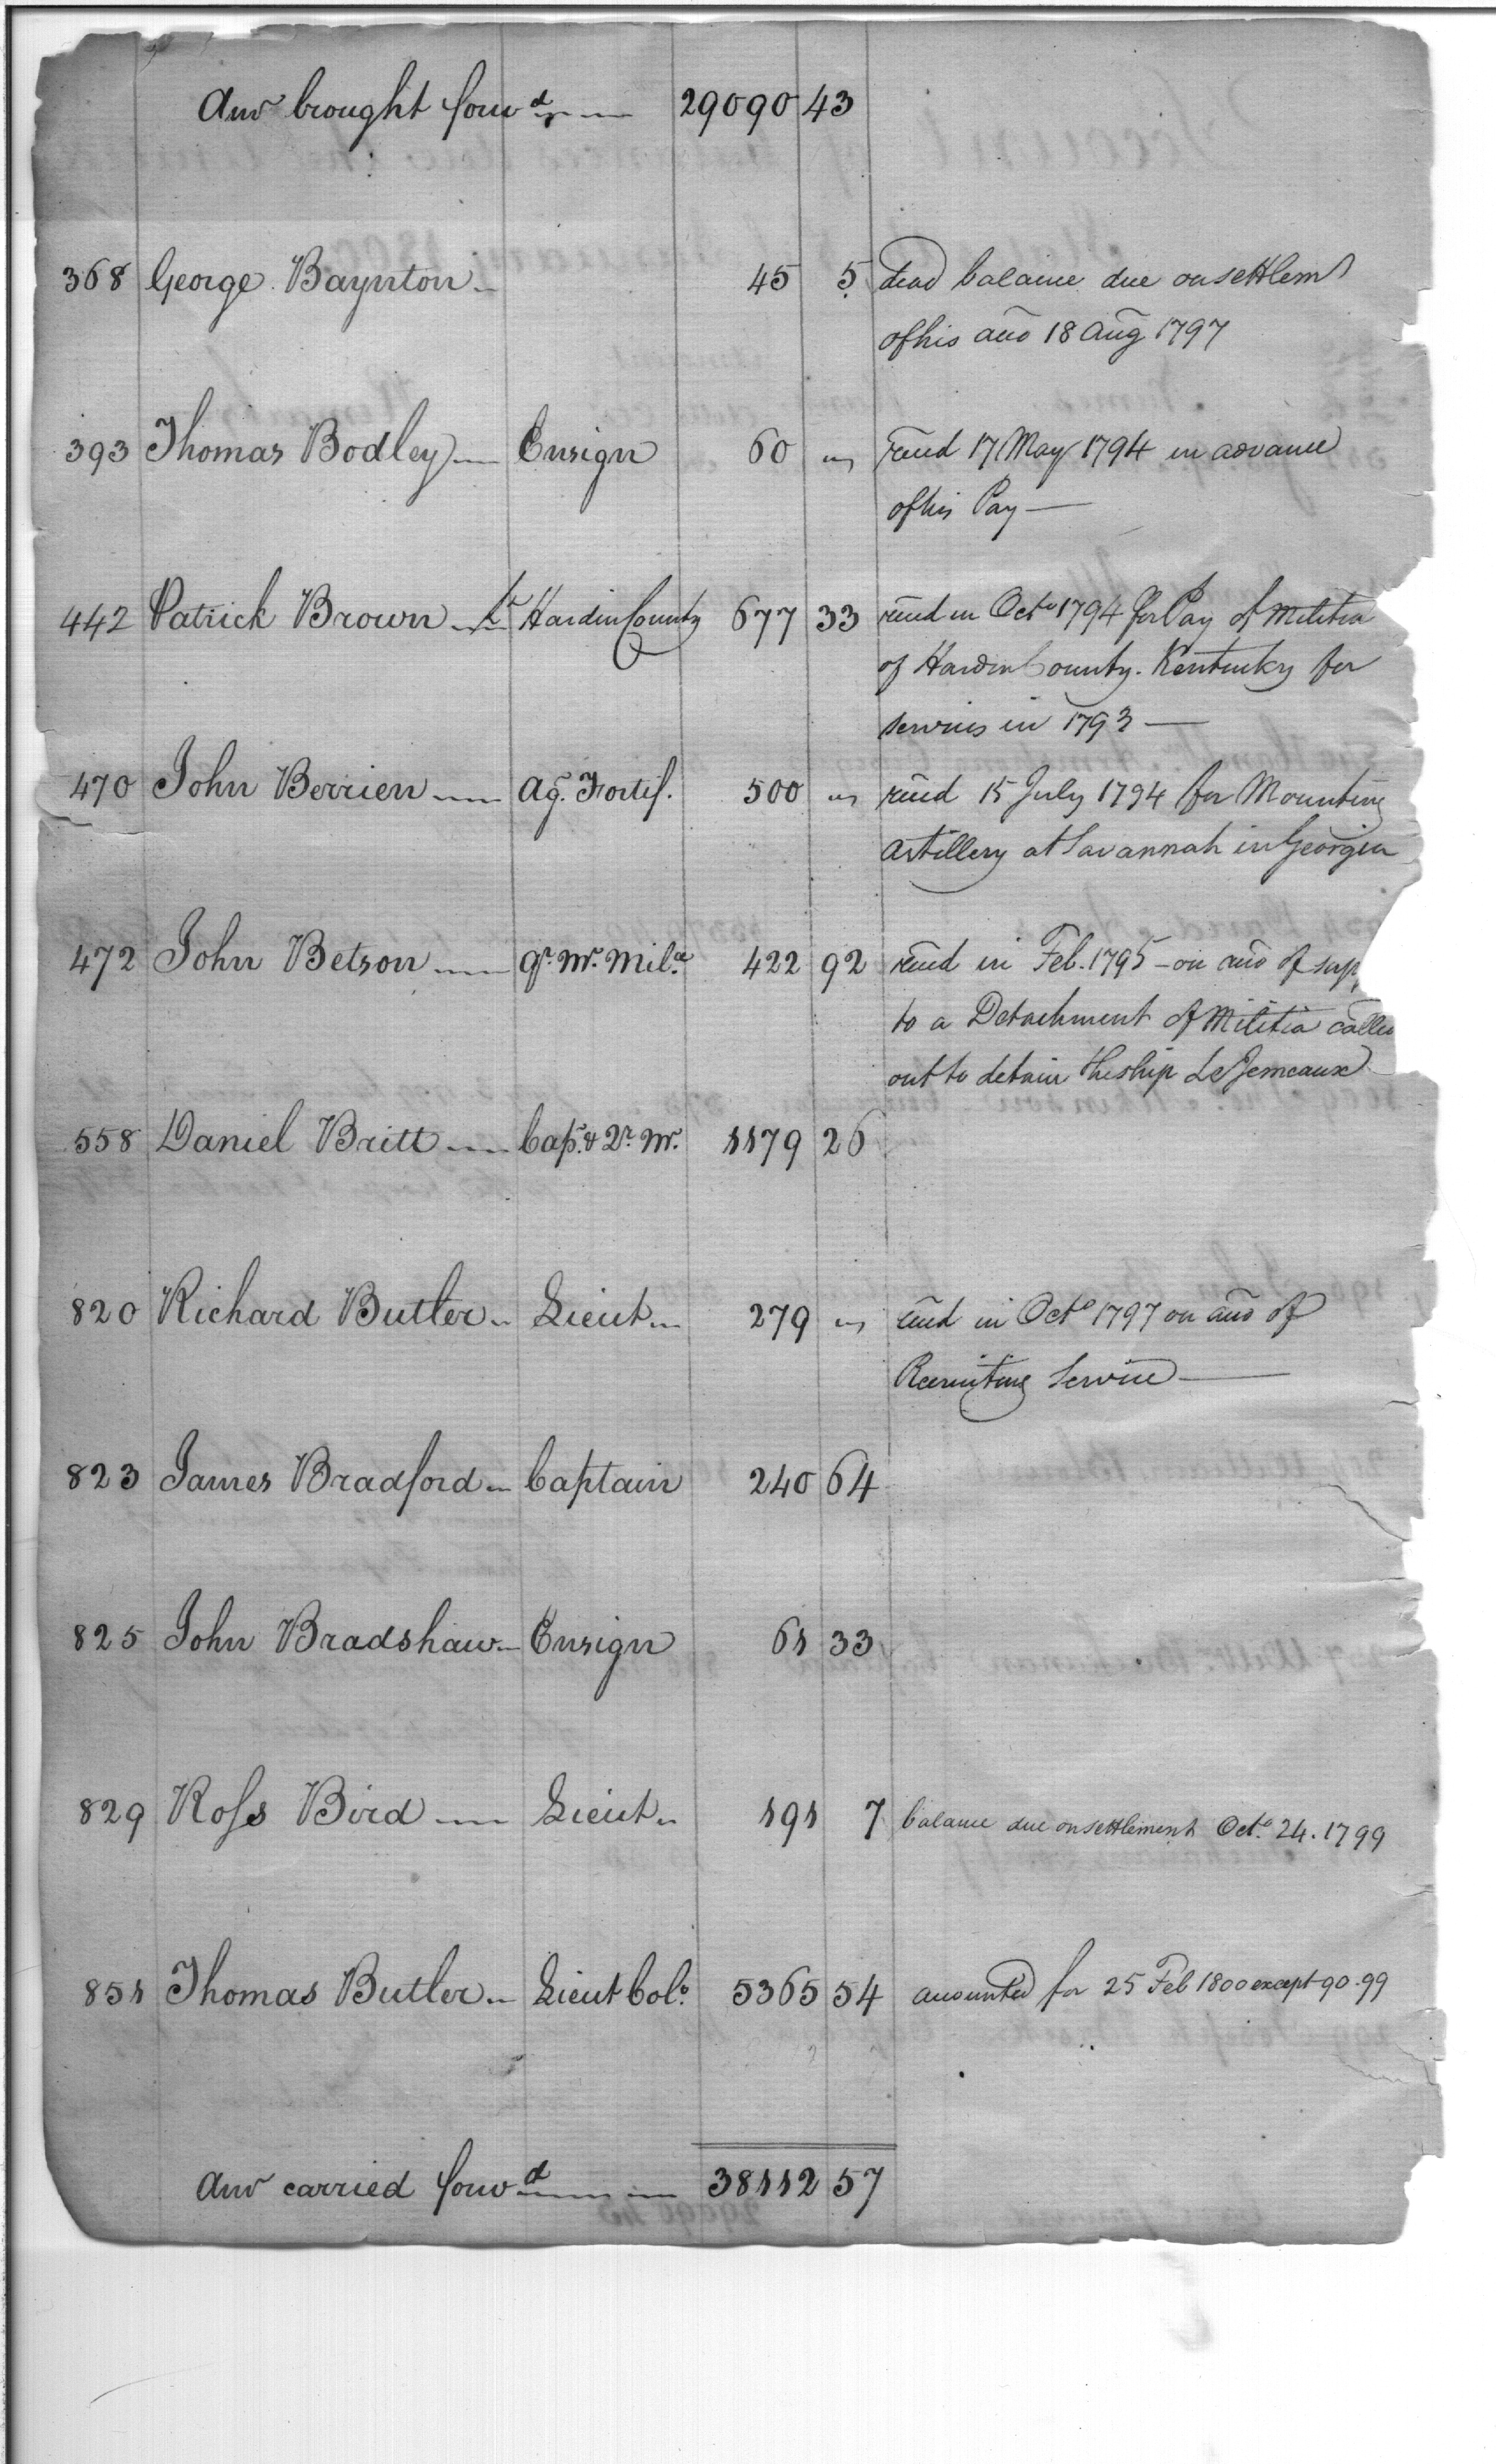 Amt brought forwd 29090 43
368 George Baynton 45 5 dead balance due on settlemt
of his acco 18 Aug 1797
393 Thomas Bodley Ensign 60 " recd 17 May 1794 in advance
of his Pay —
442 Patrick Brown Lt Hardin County 677 33 recd in Octo 1794 for Pay of Militia
of Hardin County. Kentucky for
services in 1793 —
470 John Berrien Ag. Fortif. 500 " recd 15 July 1794 for Mounting
Artillery at Savannah in Georgia
472 John Betson Qr. Mr. Mila. 422 92 recd in Feb. 1795 - on acco of sup
to a Detachment of Militia called
out to detain the ship Le Jemeaux
558 Daniel Britt Cap. & Qr. Mr. 1179 26
820 Richard Butler Lieut 279 " recd in Octo 1797 on acco of
Recruiting Service —
823 James Bradford Captain 240 64
825 John Bradshaw Ensign 61 33
829 Ross Bird Lieut 191 7 balance due on settlement Octo. 24. 1799
851 Thomas Butler Lieut Colo. 5365 54 accounted for 25 Feb 1800 except 90.99
Amt carried forwd 38112 57